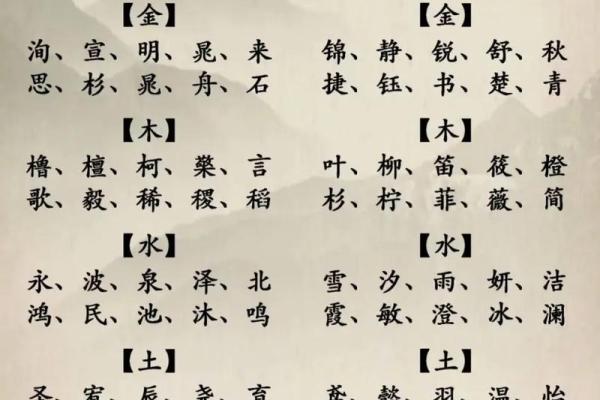 【金】
洵、宣、明、晁、来
思、杉、晁、舟、石
【木】
橹、檀、柯、檗、言
歌、毅、稀、稷、稻
【水】
永、波、泉、泽、北
鸿、民、池、沐、鸣
【土】
圣、宥、辰、尧、育
【金】
锦、静、锐、舒、秋
捷、钰、书、楚、青
【木】
叶、柳、笛、筱、橙
杉、柠、菲、薇、简
【水】
雪、汐、雨、妍、洁
霞、敏、澄、冰、澜
【土】
鸢、懿、羽、温、怡